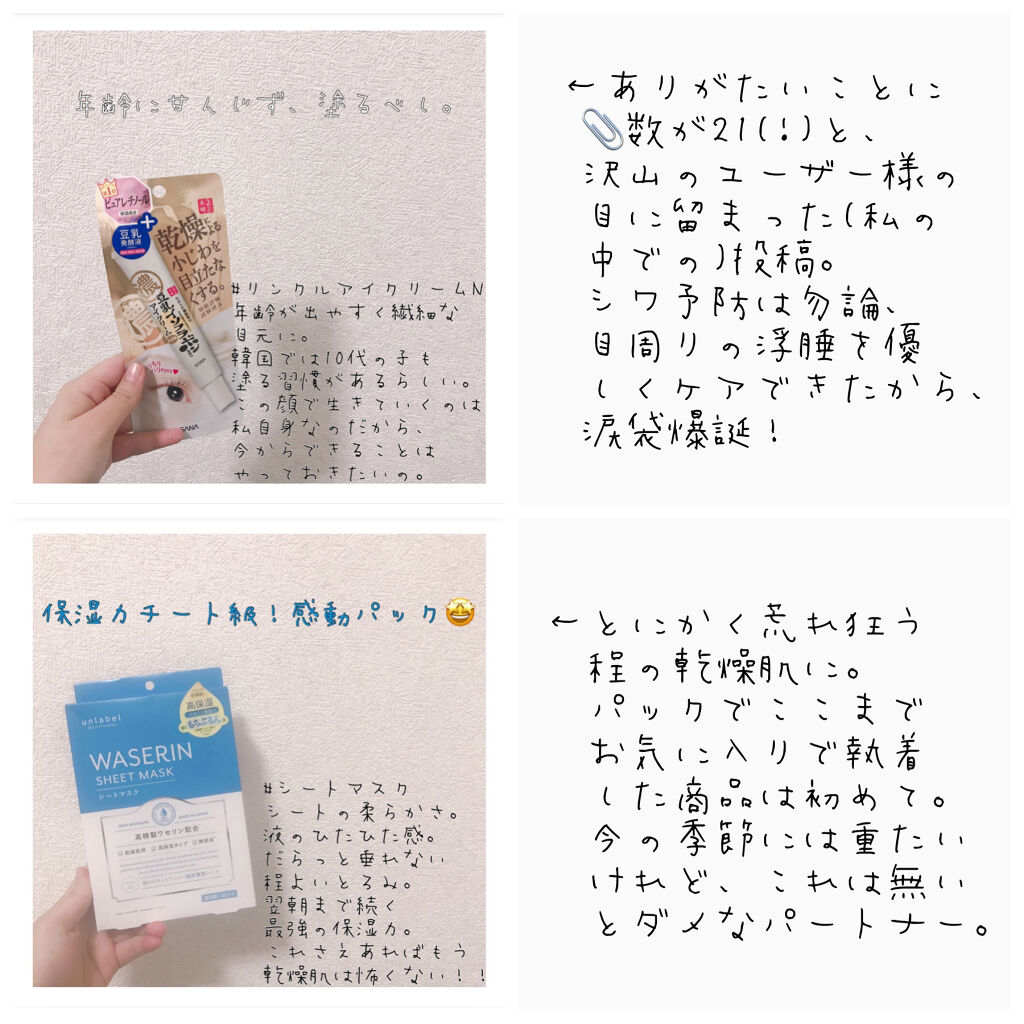 年齢に甘んじず、塗るべし。
ピュアレチノール
豆乳
発酵液
乾燥による
小じわを
目立たな
くする。
豆乳イソフラボン
アイクリーム
SANA
#リンクルアイクリームN
年齢が出やすく繊細な
目元に。
韓国では10代の子も
塗る習慣があるらしい。
この顔で生きていくのは
私自身なのだから、
今からできることは
やっておきたいの。
←ありがたいことに
📎数が21(!)と、
沢山のユーザー様の
目に留まった(私の
中での)投稿。
シワ予防は勿論、
目周りの浮腫を優
しくケアできたから、
涙袋爆誕!
保湿力チート級!感動パック🤩
unlabel
高保湿
もちぷるん
WASERIN
SHEET MASK
シートマスク
高精製ワセリン配合
#シートマスク
シートの柔らかさ。
液のひたひた感。
だらっと垂れない
程よいとろみ。
翌朝まで続く
最強の保湿力。
これさえあればもう
乾燥肌は怖くない!!
←とにかく荒れ狂う
程の乾燥肌に。
パックでここまで
お気に入りで執着
した商品は初めて。
今の季節には重たい
けれど、これは無い
とダメなパートナー。